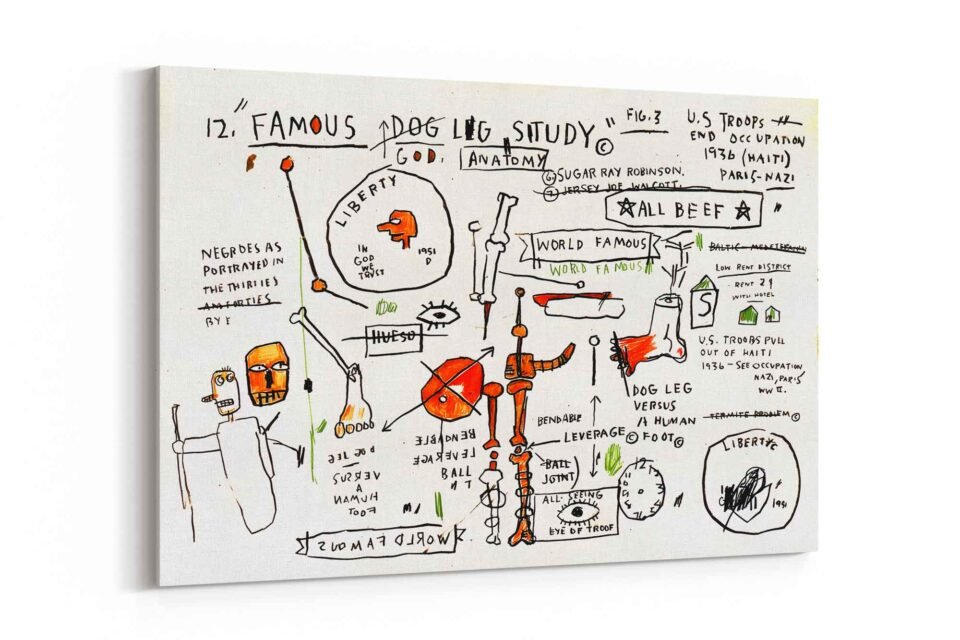 12. "FAMOUS DOG LEG STUDY" ©
GOD.
ANATOMY
FIG. 3
U.S TROOPS
END OCCUPATION
1936 (HAITI)
PARIS-NAZI
⑥ SUGAR RAY ROBINSON.
⑦ JERSEY JOE WALCOTT.
☆ ALL BEEF ☆ "
LIBERTY
IN
GOD
WE
TRUST
1951
D
NEGROES AS
PORTRAYED IN
THE THIRTIES
BY
WORLD FAMOUS
WORLD FAMOUS
LOW RENT DISTRICT
RENT 2
WITH HOTEL
S
HUESO
U.S. TROOPS PULL
OUT OF HAITI
1936 - SEE OCCUPATION
NAZI, PARIS
WW II.
TERMITE PROBLEM ©
DOG LEG
VERSUS
A HUMAN
FOOT ©
BENDABLE
LEVERAGE ©
BALL
JOINT)
BENDABLE
LEVERAGE
BALL
DOG LEG
VERSUS
A
HUMAN
FOOT
ALL-SEEING
EYE OF TROOF
12
WORLD FAMOUS
LIBERTY
1951